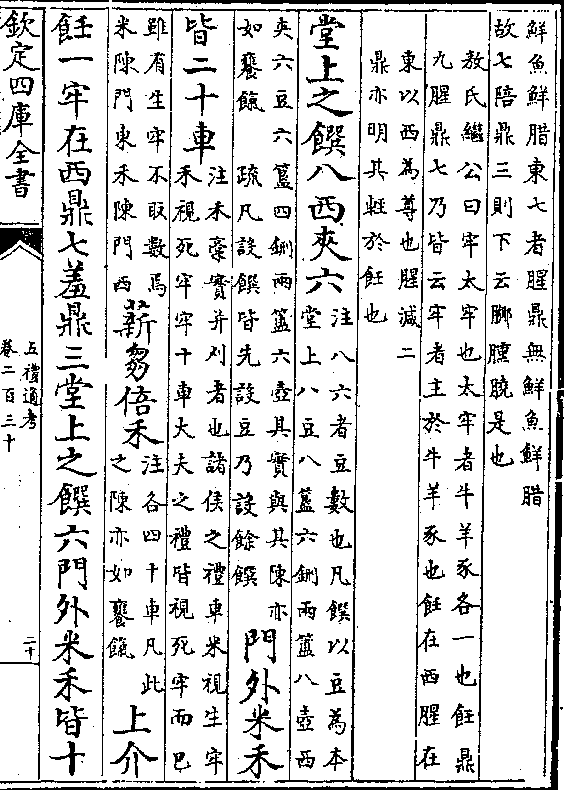 鮮魚鮮腊東七者腥鼎無鮮魚鮮腊
故七陪鼎三則下云膷臐膮是也
敖氏繼公曰牢太牢也太牢者牛羊豕各一也飪鼎
九腥鼎七乃皆云牢者主於牛羊豕也飪在西腥在
東以西為尊也腥減二
鼎亦明其蛭於飪也
堂上之饌八西夾六注八六者豆數也凡饌以豆為本堂上八豆八簋六鉶兩簠八壺西
夾六豆六簋四鉶兩簠六壺其實與其陳亦如饔餼 疏凡設饌皆先設豆乃設餘饌門外米禾
皆二十車注禾稾實并刈者也諸侯之禮車米視生牢禾視死牢牢十車大夫之禮皆視死牢而已
雖有生牢不取數焉米陳門東禾陳門西薪芻倍禾注各四十車凡此之陳亦如饔餼上介
飪一牢在西鼎七羞鼎三堂上之饌六門外米禾皆十
欽定四庫全書
五禮通考
卷二百三十
二十